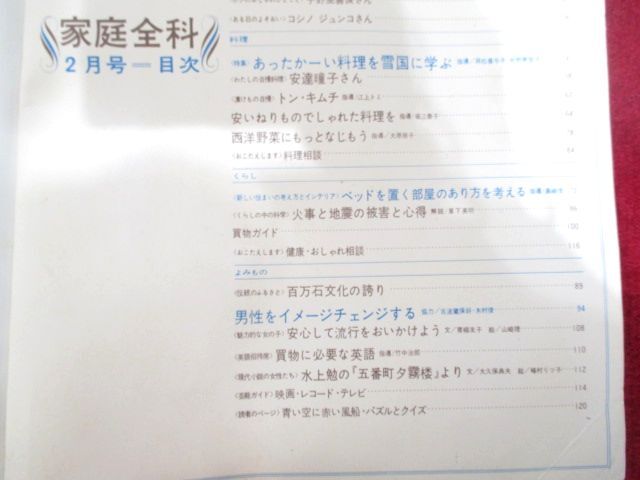 家庭全科
2月号＝目次
コシノ ジュンコさん
料理
〈特集〉あったかーい料理を雪国に学ぶ
〈わたしの自慢料理〉安達瞳子さん
〈漬けもの自慢〉トン・キムチ 指導/江上トミ
安いねりものでしゃれた料理を
西洋野菜にもっとなじもう
〈おこたえします〉料理相談 84
くらし
〈新しい住まいの考え方とインテリア〉ベッドを置く部屋のあり方を考える
〈くらしの中の科学〉火事と地震の被害と心得 96
買物ガイド 100
〈おこたえします〉健康・おしゃれ相談 116
よみもの
〈伝統のふるさと〉百万石文化の誇り 89
男性をイメージチェンジする 94
〈魅力的な女の子〉安心して流行をおいかけよう 108
〈英語招待席〉買物に必要な英語 指導/竹中治郎 110
〈現代小説の女性たち〉水上勉の『五番町夕霧楼』より 文/大久保典夫 112
〈芸能ガイド〉映画・レコード・テレビ 114
〈読者のページ〉青い空に赤い風船・パズルとクイズ 120